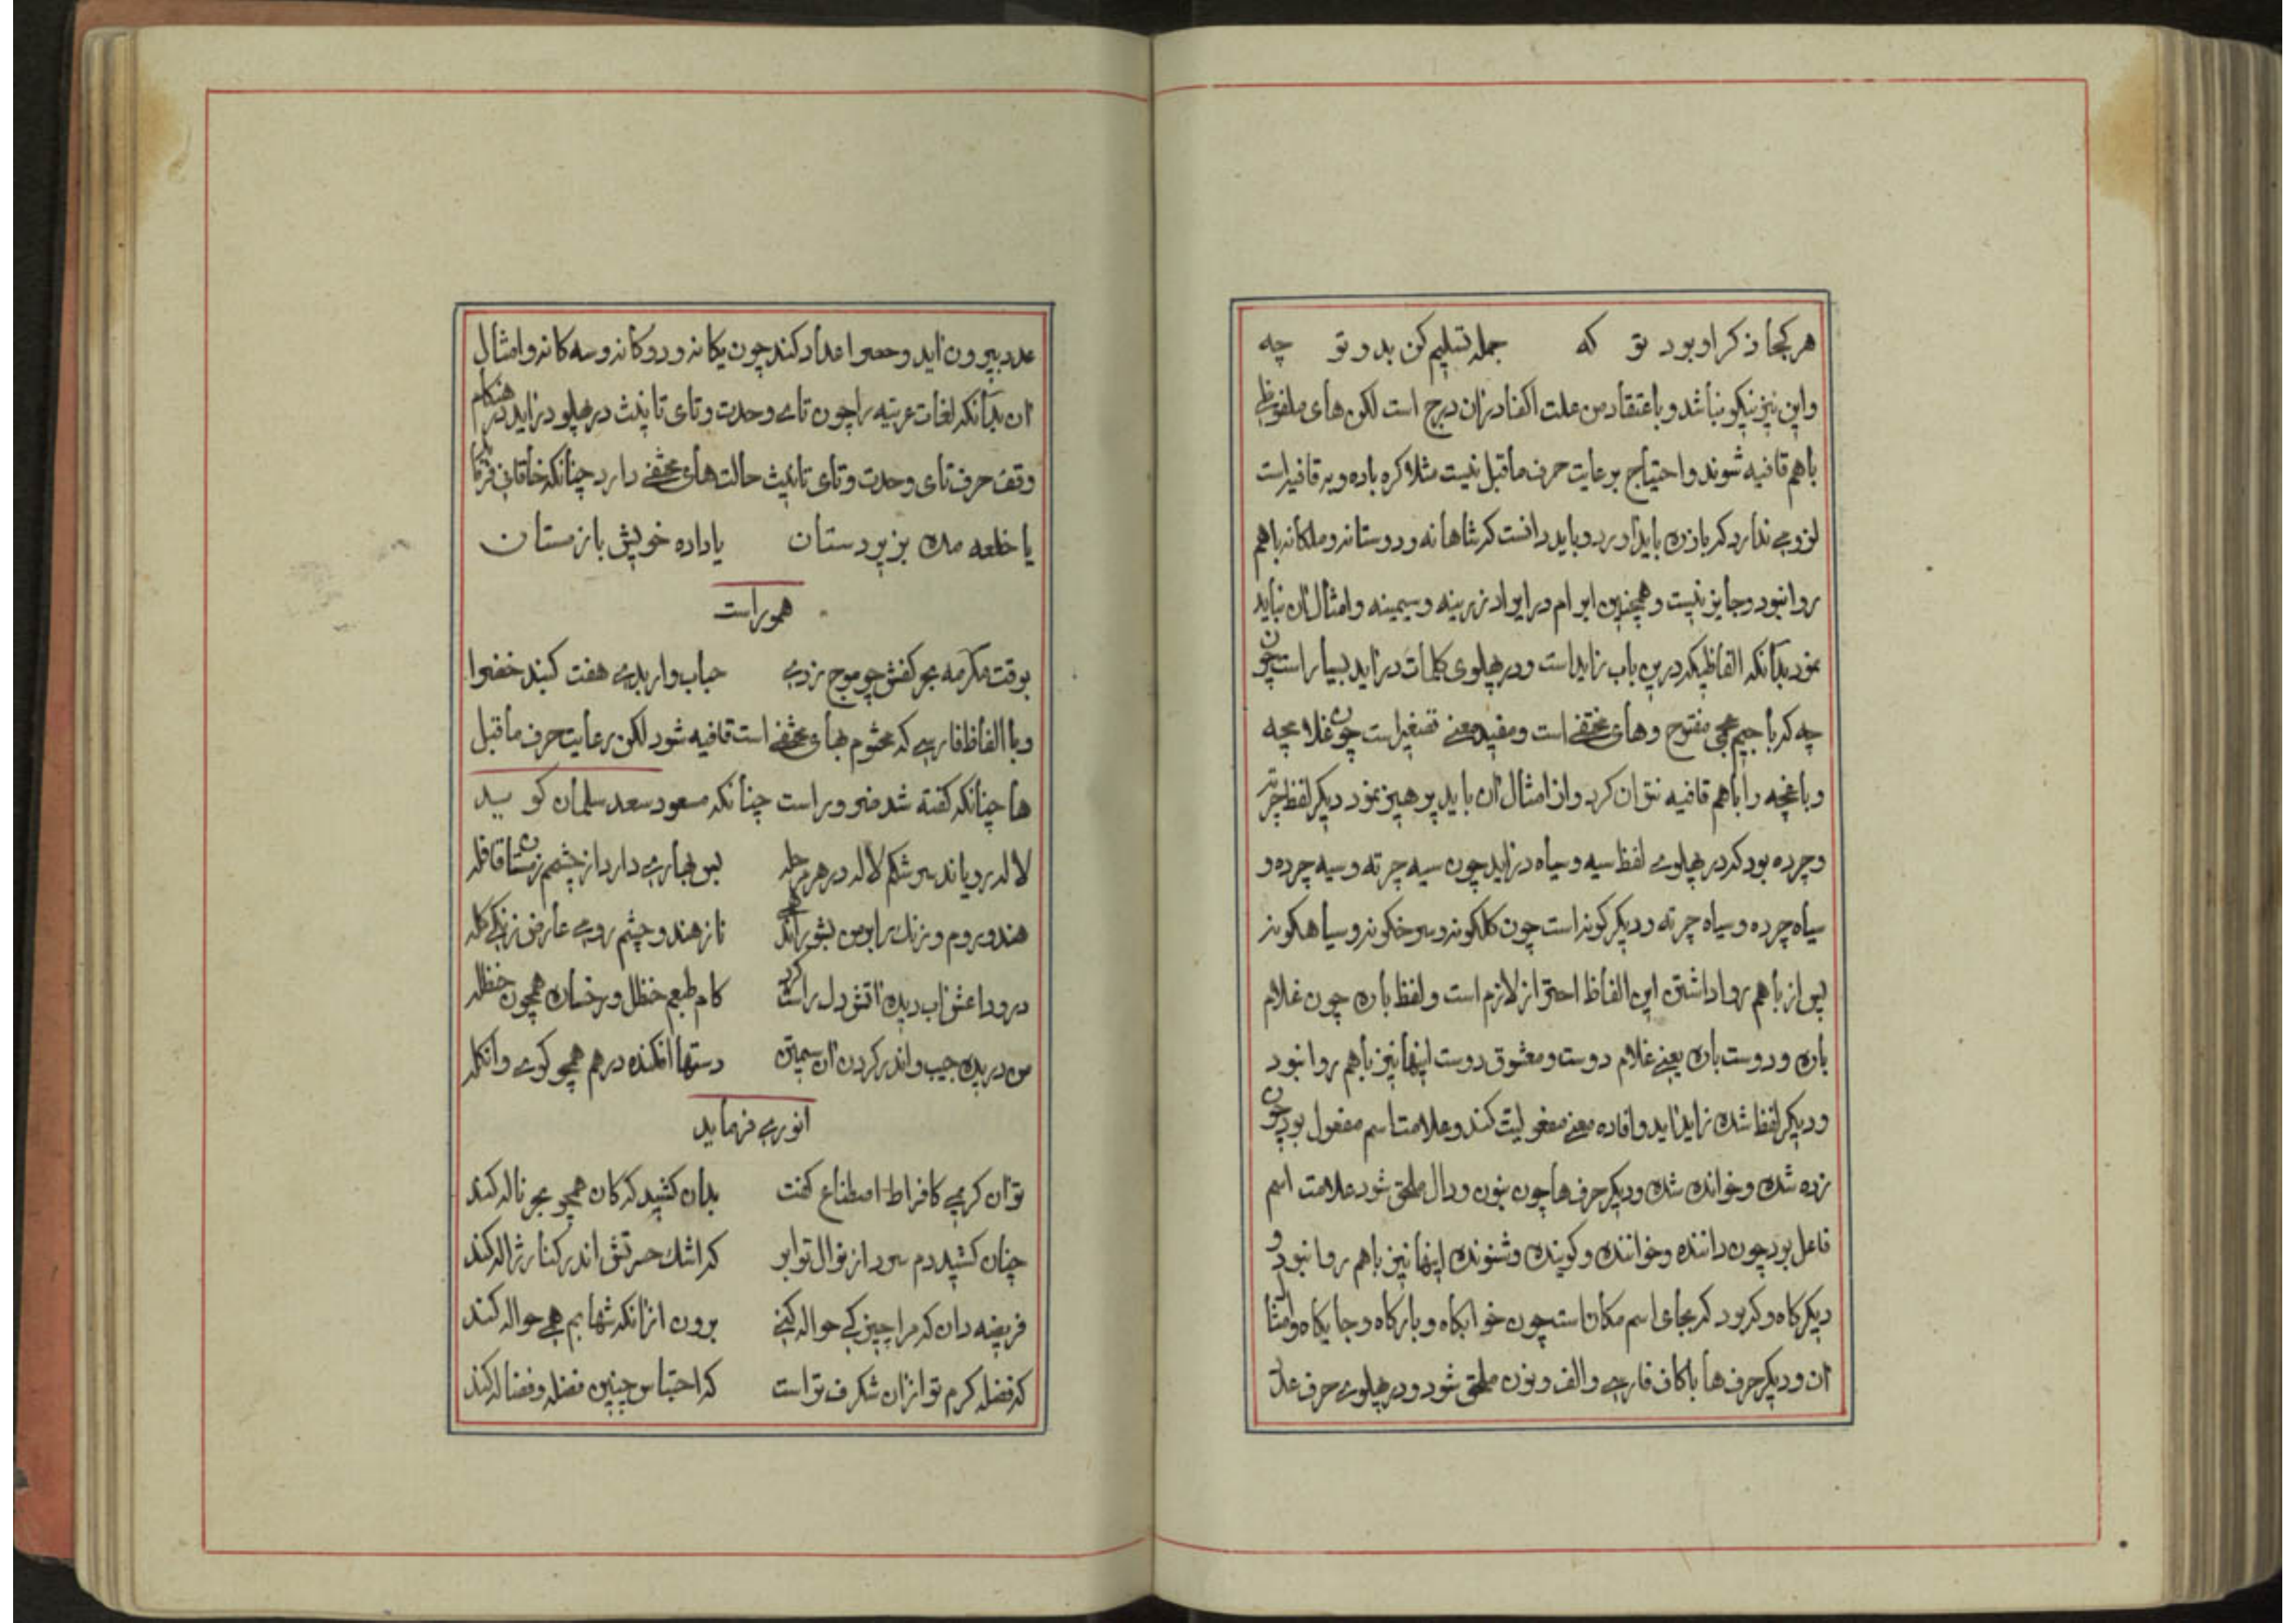 هر کجا ذکر او بود تو که جمله تسلیم کن بدو تو چه
واین نیز نیکو نباشد و باعتقاد من علت اکفا درزان درج است لکن های ملفوظ
باهم قافیه شوند و احتیاج برعایت حرف ماقبل نیست مثلا کره باده و بر قافیه است
لزومی ندارد که بازه باید آورد و باید دانست که شاهانه و دوستانه و ملکانه باهم
روا نبود و جایز نیست و همچنین ابرام در ایراد زرینه و سیمینه و امثال آن نباید
نمود بدانکه الفاظیکه درین باب زاید است و در پهلوی کلمات درآید بسیار است چون
چه که با جیم عجمی مفتوح و های مختفی است و مفید معنی تصغیر است چون غلامچه
و باغچه را باهم قافیه نتوان کرد و از امثال آن باید پرهیز نمود دیگر لفظ چرته
و چرده بود که در پهلوی لفظ سیه و سیاه درآید چون سیه چرته و سیه چرده و
سیاه چرده و سیاه چرته و دیگر کونه است چون کلکونه و سرخکونه و سیاهکونه
پس از باهم روا داشتن این الفاظ احتراز لازم است و لفظ باره چون غلام
باره و دوست باره یعنی غلام دوست و معشوق دوست اینها نیز باهم روا نبود
و دیگر لفظ شده زاید آید و افاده معنی مفعولیت کند و علامت اسم مفعول بود چون
زده شده و خوانده شده و دیگر حرف ها چون بنون و دال ملحق شود علامت اسم
فاعل بود چون داننده و خواننده و کوینده و شنونده اینها نیز باهم روا نبود و
دیگر کاه و که بود که بجای اسم مکان است چون خوابکاه و بارکاه و جایکاه و امثال
آن و دیگر حرف ها با کاف فارسی و الف و نون ملحق شود و در پهلوی حرف علت
عدد بیرون آید و حصر اعداد کند چون یکانه و دوکانه و سه کانه و امثال
آن بدانکه لغات عربیه را چون تای وحدت و تای تانیث در پهلو درآید در هنکام
وقف حرف تای وحدت و تای تانیث حالت های مختفی دارد چنانکه خاقانی فرماید
یا خلعه مده بزیردستان یا داده خویش باز مستان
هموراست
بوقت مکرمه بحر کفش چو موج زدی حباب وار بدی هفت کنبد خضرا
و با الفاظ فارسی که مختوم بهای مختفی است قافیه شود لکن رعایت حرف ماقبل
ها چنانکه کفته شد ضرور است چنانکه مسعود سعد سلمان کوید
لاله رویاند سرشکم لاله در هر مرحله بس بهاری دارد از چشم زمستان قافله
هند و روم و زنک را بر من بشورانند تا ز هندو چشم رومی عارض زنکی کله
درود اعشق آب دیده آتش دل راست کرد کام طبعم حنظل و رخسان همچون حنظله
من دریده جیب و اندر کردن آن سیمتن دستها افکنده درهم همچو کوی و انکله
انوری فرماید
تو آن کریمی کافراط اصطناع کفت بدان کشید که کان همچو بحر ناله کند
چنان کشید دم سرد از نوال تو ابر که اشک حسرتش اندر کنار ژاله کند
فریضه دان که مرا چیزکی حواله کنی برون از آنکه شهابم همی حواله کند
که فضله کرم تو از آن شکرف تر است که احتباس چنین فضله و فضاله کند